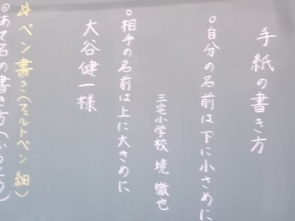 手紙の書き方
○自分の名前は下に小さめに
三宅小学校 境 徹也
○相手の名前は上に大きめに
大谷健一様
ペン書き(フェルトペン 細)
◎あて名の書き方(